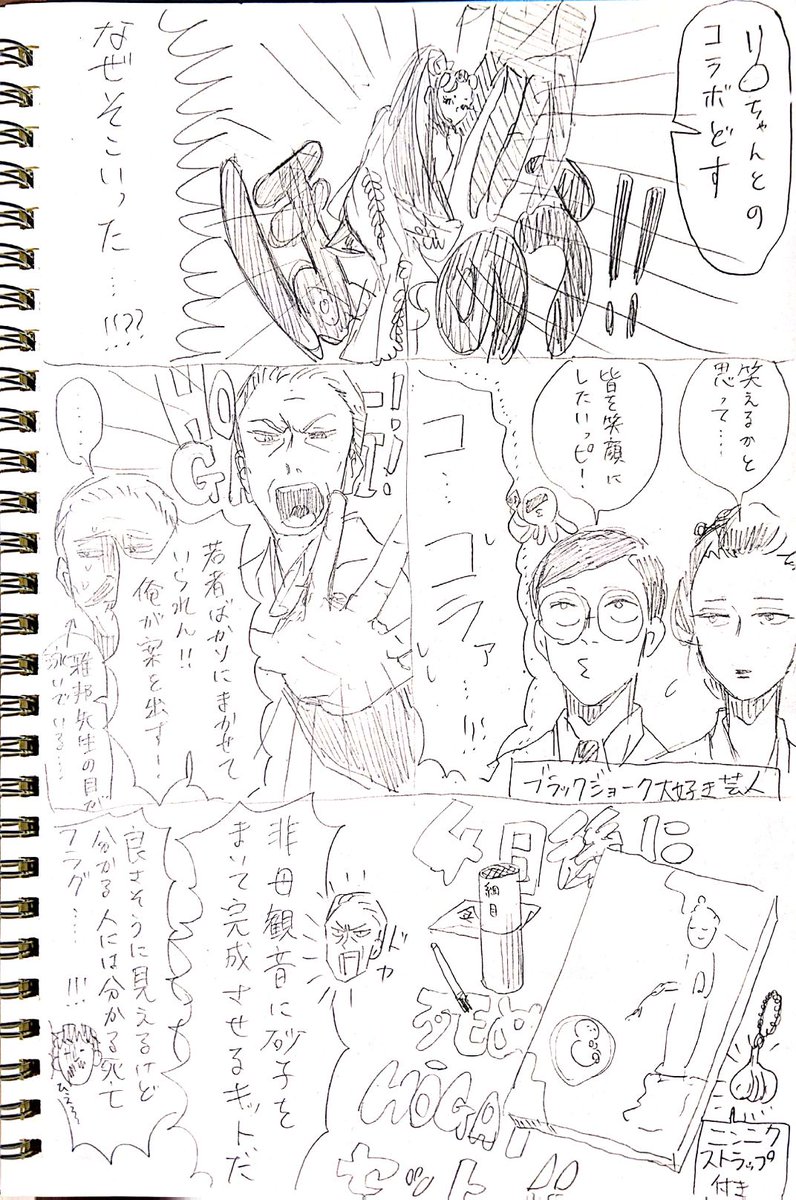 リ○ちゃんとの
コラボどす
ほのう"!!
なぜそこいった…!!??
笑えるかと
思って……
皆を笑顔に
したいッピ!
コ…コラァ…!!
ブラックジョーク大好き芸人
HO
GA
I!
若者ばかりにまかせて
いられん!!
俺が案を出す!
……
雅邦先生の目が
泳いでいる…
4日後に
死ぬ
HŌGAI
セット
細目
ニンニク
ストラップ
付き
ドカ
非母観音に砂子を
まいて完成させるキットだ
良さそうに見えるけど
分かる人には分かる死亡
フラグ……!!!
ひえ〜